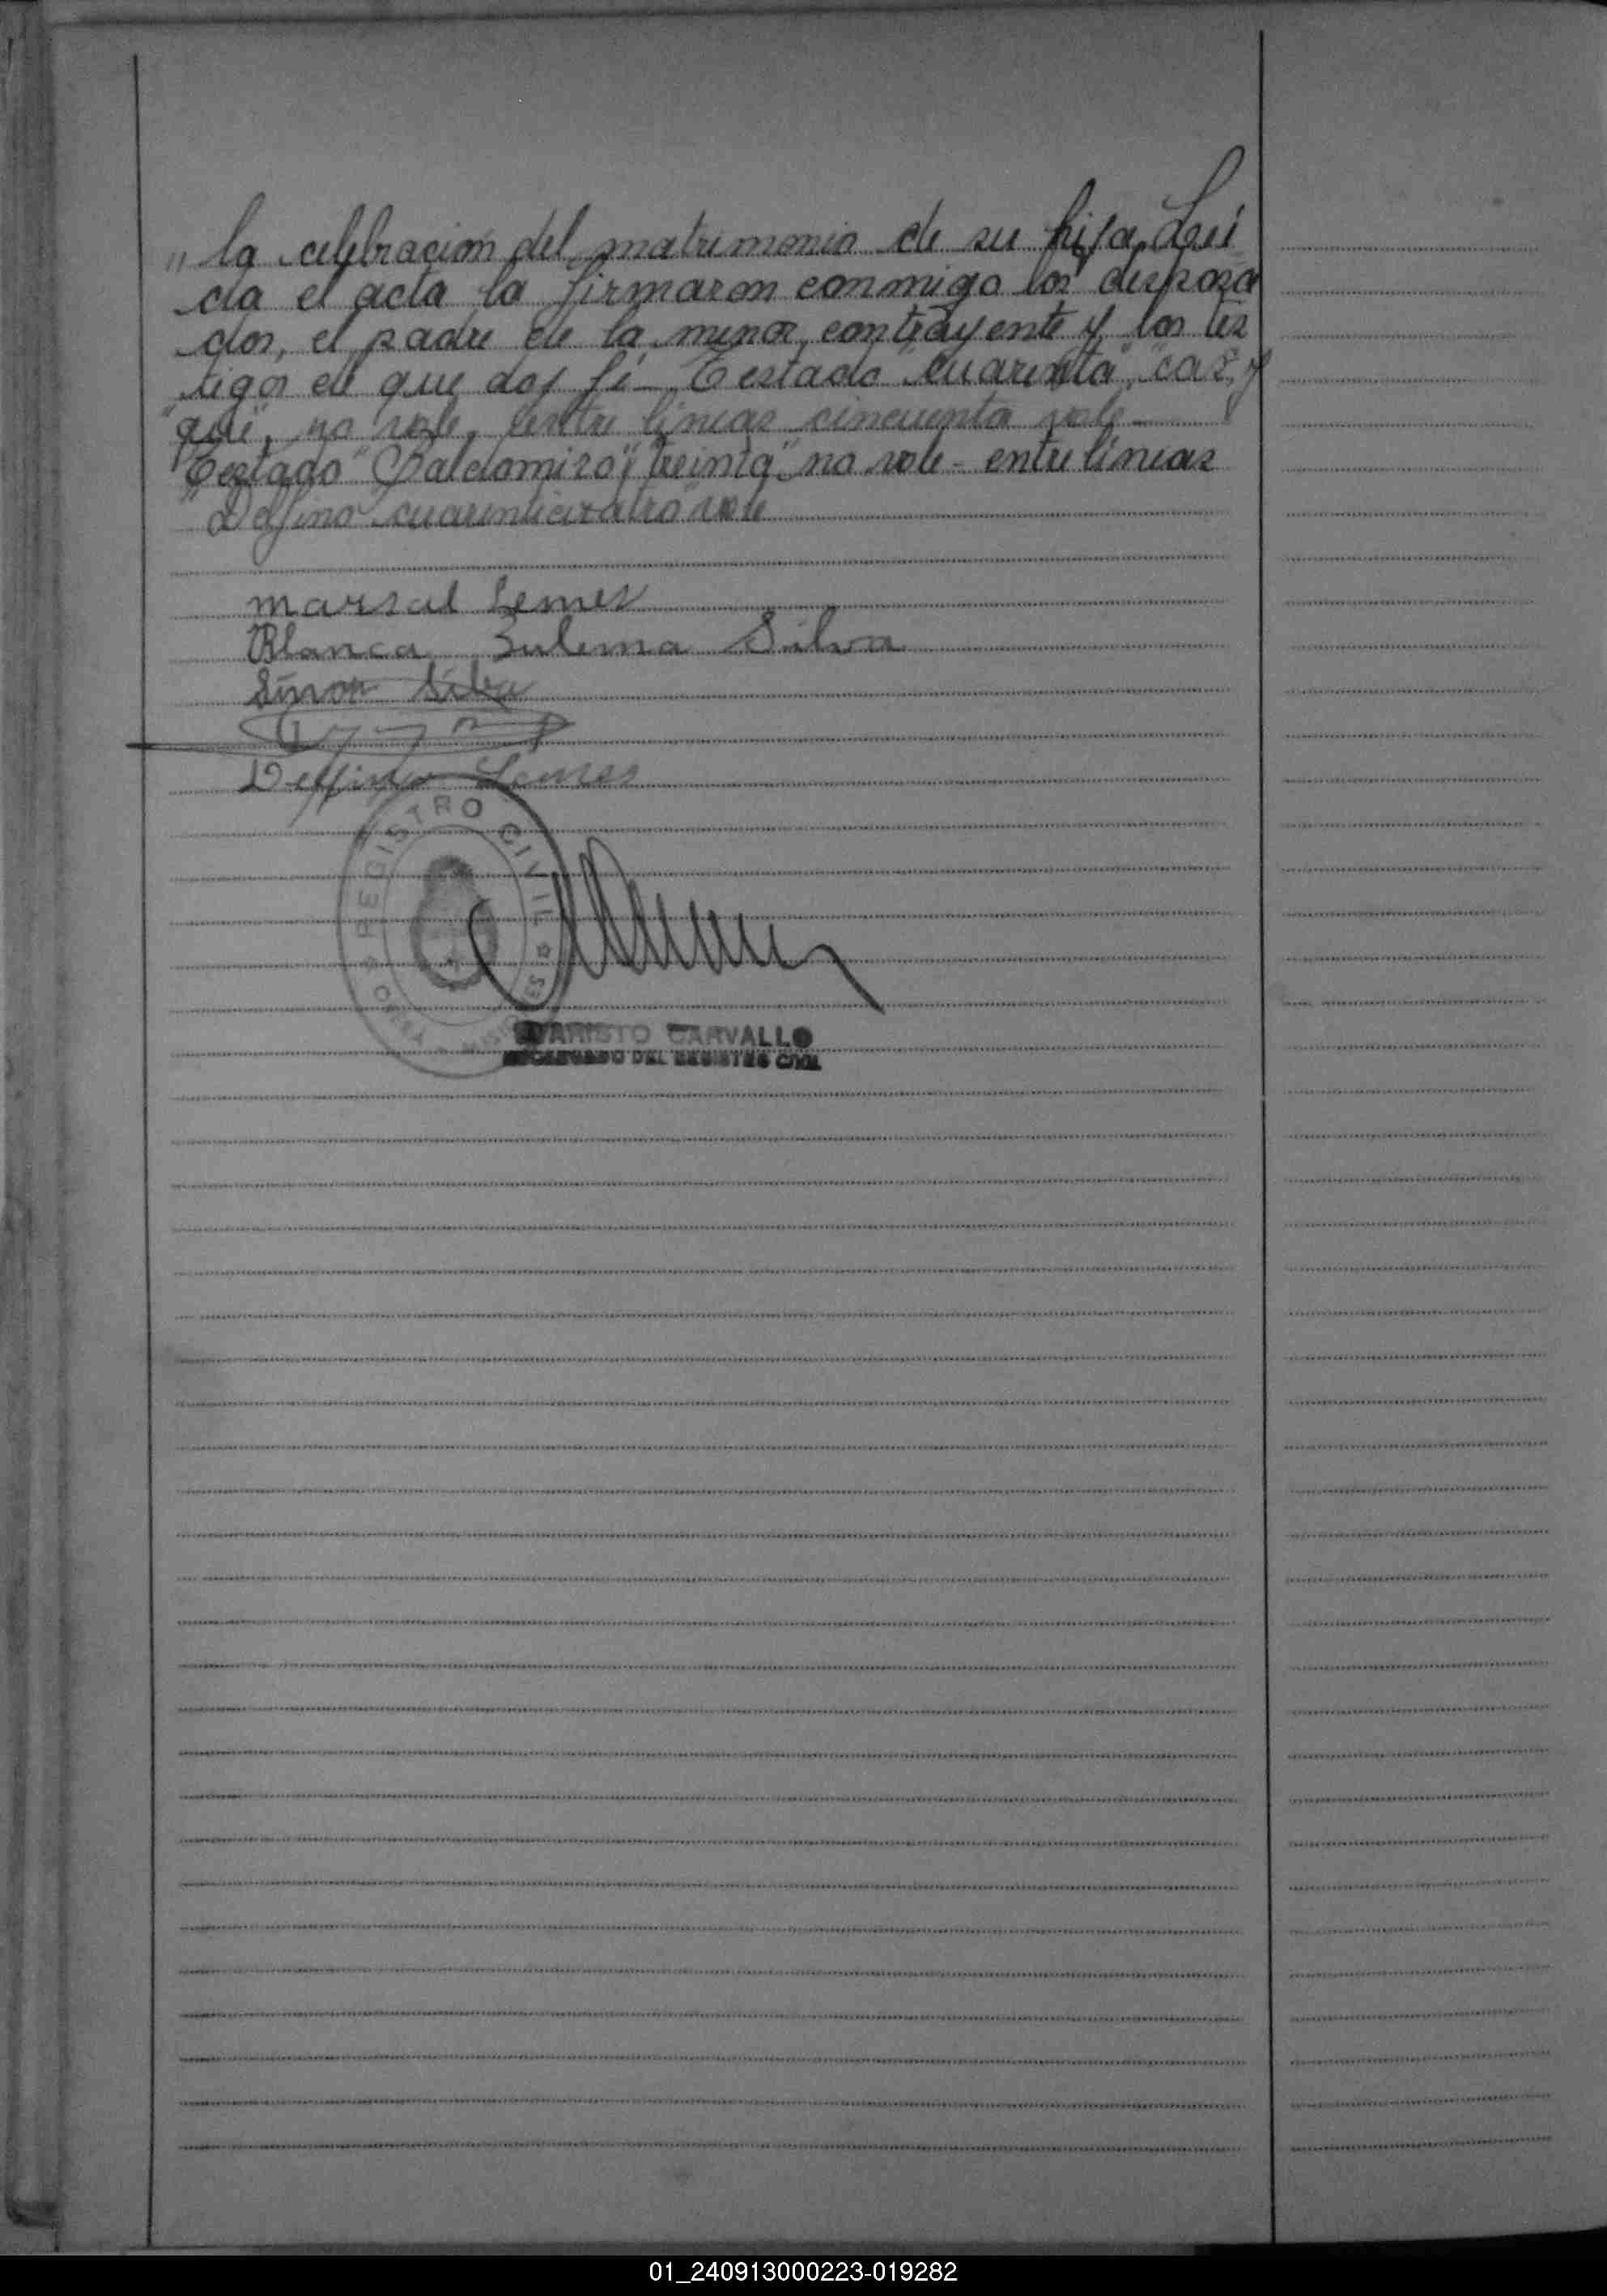 " la celebración del matrimonio de su hija, Leí
da el acta la firmaron conmigo los desposa
dos, el padre de la menor contrayente y los tes
tigos de que doy fé - Testado "cuarenta", "cas", y
"que", no vale, entre líneas cincuenta vale -
Testado "Baldomiro", "treinta" no vale - entre líneas
"Delfino" "cuarenticuatro" vale
Marsal Lemes
Blanca Sulema Silva
Simon Silva
Delfino Lemes
REGISTRO CIVIL
MISIONES
EVARISTO CARVALLO
ENCARGADO DEL REGISTRO CIVIL
01_240913000223-019282